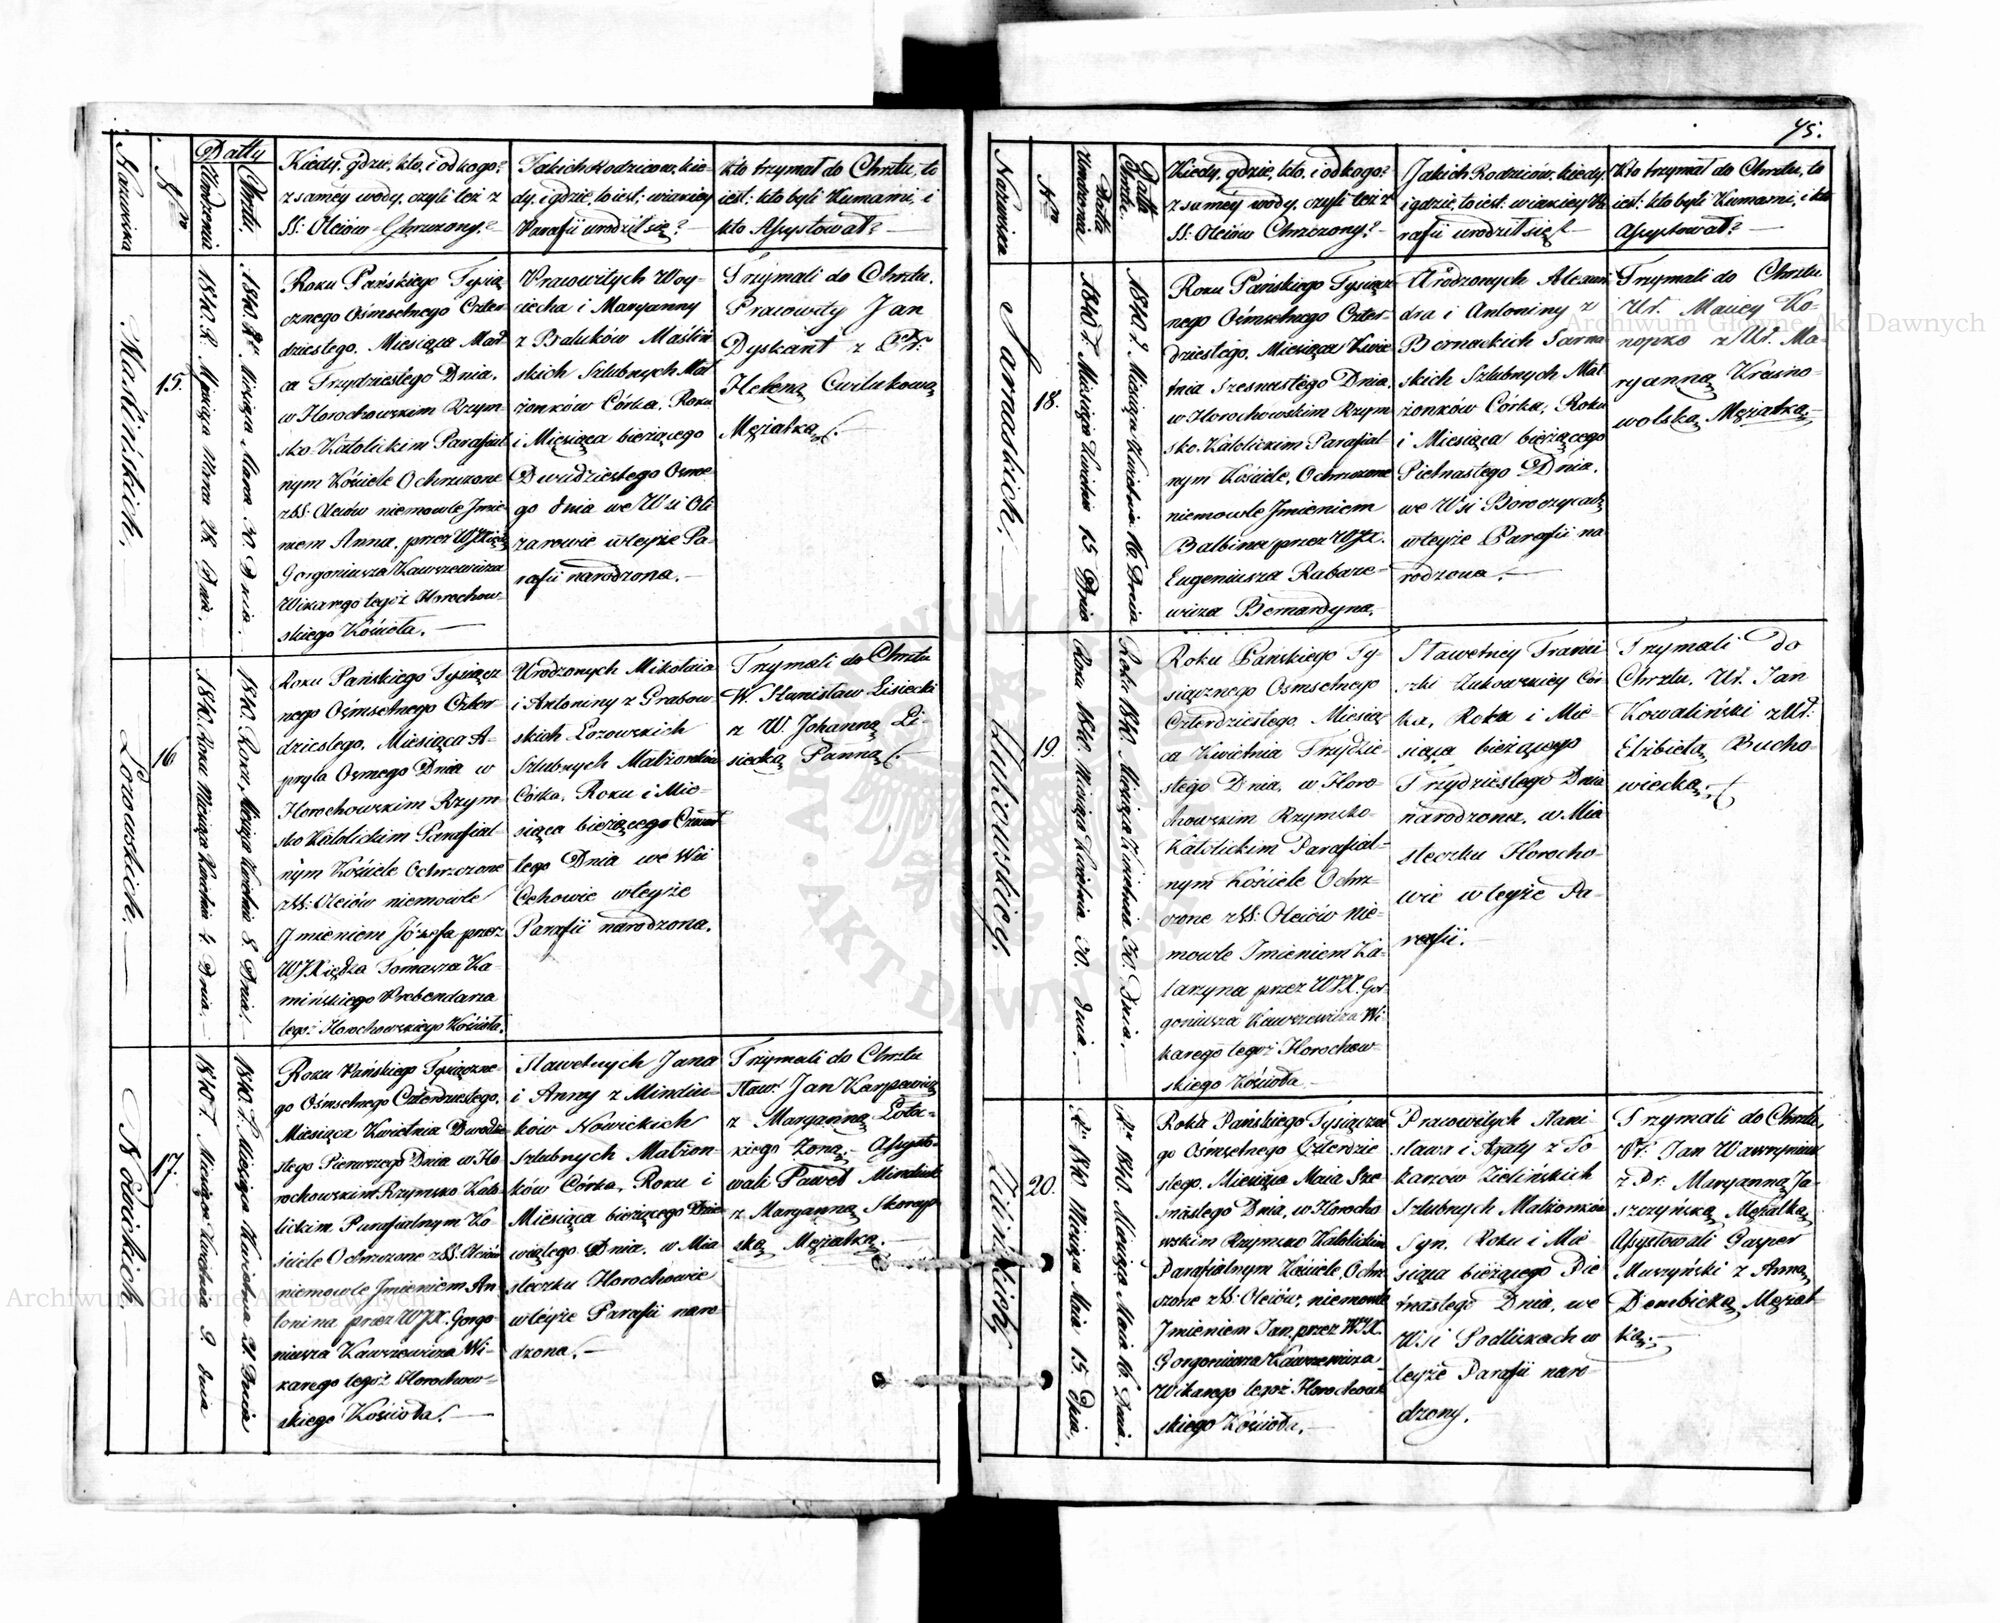 45.
Nazwiska
Nro
Datty
Urodzenia
Chrztu
Kiedy, gdzie, kto, i od kogo?
z samey wody, czyli też z
SS: Oleiów Chrzczony?
Jakich Rodziców, kie-
dy, i gdzie, to iest: w iakiey
Parafii urodził się?
Kto trzymał do Chrztu, to
iest: kto byli Kumami, i
kto Assystował?
Maślińskich.
15.
1840. R. Miesiąca Marca 28. Dnia.
1840. Rr. Miesiąca Marca 30. Dnia.
Roku Pańskiego Tysią-
cznego Ośmsetnego Czter-
dziestego, Miesiąca Mar-
ca Trzydziestego Dnia,
w Horochowskim Rzym-
sko Katolickim Parafial-
nym Kościele Ochrzczone
z SS: Oleiów niemowle Jmie-
niem Anna, przez WJXiędza
Gorgoniusza Kawszewicza
Wikarego tegoż Horochow-
skiego Kościoła.
Pracowitych Woy-
ciecha i Maryanny
z Baluków Maśliń-
skich Szlubnych Mał-
żonków Córka, Roku
i Miesiąca bieżącego
Dwudziestego Osme-
go dnia we Wsi Oli-
zarowie w teyże Pa-
rafii narodzona.
Trzymali do Chrztu.
Pracowity Jan
Dyskant z Pr:
Heleną Cwilukową
Mężatką.
Łozowskich.
16
1840. Roku Miesiąca Kwietnia 4. Dnia.
1840. Roku, Miesiąca Kwietnia 8 Dnia.
Roku Pańskiego Tysiącz-
nego Ośmsetnego Czter-
dziestego, Miesiąca A-
pryla Osmego Dnia w
Horochowskim Rzym-
sko Katolickim Parafial-
nym Kościele Ochrzczone
z SS: Oleiów niemowle
Jmieniem Józefa przez
WJXiędza Tomasza Ka-
mińskiego Prebendarza
tegoż Horochowskiego Kościoła.
Urodzonych Mikołaia
i Antoniny z Grabow-
skich Łozowskich
Szlubnych Małżonków
Córka, Roku i Mie-
siąca bieżącego Czwar-
tego Dnia we Wsi
Cehowie w teyże
Parafii narodzona.
Trzymali do Chrztu
W. Stanisław Lisiecki
z W. Johanną Li-
siecką Panną.
Nowickich.
17.
1840 r. Miesiąca Kwietnia 9 dnia
1840. r. Miesiąca Kwietnia 21 Dnia
Roku Pańskiego Tysiączne-
go Ośmsetnego Czterdziestego,
Miesiąca Kwietnia Dwudzie-
stego Pierwszego Dnia w Ho-
rochowskim Rzymsko Kato-
lickim Parafialnym Ko-
ściele Ochrzczone z SS: Oleiów
niemowle Jmieniem An-
tonina przez WJX. Gorgo-
niusza Kawszewicza Wi-
karego tegoż Horochow-
skiego Kościoła.
Sławetnych Jana
i Anny z Mindiu-
ków Nowickich
Szlubnych Małżon-
ków Córka, Roku i
Miesiąca bieżącego Dzie-
wiątego Dnia, w Mia-
steczku Horochowie
w teyże Parafii naro-
dzona.
Trzymali do Chrztu
Sław: Jan Karpowicz
z Maryanną Łoto-
kiego Żoną. Assysto-
wali Paweł Mindiuk
z Maryanną Skorup-
ską Mężatką.
Nazwiska
Nro
Datta
Urodzenia
Datta
Chrztu
Kiedy, gdzie, kto, i od kogo?
z samey wody, czyli też z
SS: Oleiów Chrzczony?
Jakich Rodziców, kiedy,
i gdzie, to iest: w iakiey Pa-
rafii urodził się?
Kto trzymał do Chrztu, to
iest: kto byli Kumami, i kto
Assystował?
Sarnaskich.
18.
1840. r. Miesiąca Kwietnia 15 Dnia
1840. r. Miesiąca Kwietnia 16 Dnia
Roku Pańskiego Tysiącz-
nego Ośmsetnego Czter-
dziestego, Miesiąca Kwie-
tnia Szesnastego Dnia,
w Horochowskim Rzym-
sko Katolickim Parafial-
nym Kościele, Ochrzczone
niemowle Jmieniem
Balbina przez WJX.
Eugeniusza Rabcze-
wicza Bernardyna.
Urodzonych Alexan-
dra i Antoniny z
Bernackich Sarna-
skich Szlubnych Mał-
żonków Córka, Roku
i Miesiąca bieżącego
Pietnastego Dnia,
we Wsi Boroczycach
w teyże Parafii na-
rodzona.
Trzymali do Chrztu
Ur. Maciey Ko-
nopko z Ur. Ma-
ryanną Krasno-
wolską Mężatką.
Żukowskiey.
19.
Roku 1840. Miesiąca Kwietnia 30. dnia.
Roku 1840. Miesiąca Kwietnia 30. Dnia.
Roku Pańskiego Ty-
siącznego Ośmsetnego
Czterdziestego, Miesią-
ca Kwietnia Trzydzie-
stego Dnia, w Horo-
chowskim Rzymsko-
Katolickim Parafial-
nym Kościele Ochrz-
czone z SS: Oleiów nie-
mowle Jmieniem Ka-
tarzyna przez WJX. Gor-
goniusza Kawszewicza Wi-
karego tegoż Horochow-
skiego Kościoła.
Sławetney Franci-
szki Żukowskiey Cór-
ka, Roku i Mie-
siąca bieżącego
Trzydziestego Dnia
narodzona, w Mia-
steczku Horocho-
wie w teyże Pa-
rafii.
Trzymali do
Chrztu, Ur. Jan
Kowaliński z Ur:
Elżbietą Bucho-
wiecką.
Zielińskich
20.
Rr 1840 Miesiąca Maia 15. Dnia,
Rr 1840. Miesiąca Maia 16. Dnia.
Roku Pańskiego Tysiączne-
go Ośmsetnego Czterdzie-
stego, Miesiąca Maia Sze-
snastego Dnia, w Horocho-
wskim Rzymsko Katolickim
Parafialnym Kościele, Ochrz-
czone z SS: Oleiów, niemowle
Jmieniem Jan, przez WJX.
Gorgoniusza Kawszewicza
Wikarego tegoż Horochow-
skiego Kościoła.
Pracowitych Stani-
sława i Agaty z To-
karzów Zielińskich
Szlubnych Małżonków
Syn, Roku i Mie-
siąca bieżącego Pie-
tnastego Dnia, we
Wsi Podliskach w
teyże Parafii naro-
dzony.
Trzymali do Chrztu,
Pr: Jan Wawryniuk
z Pr. Maryanną Ja-
szczyńską Mężatką
Assystowali Gasper
Muszyński z Anną
Dembicką Mężat-
ką.
Archiwum Główne Akt Dawnych
Archiwum Główne Akt Dawnych